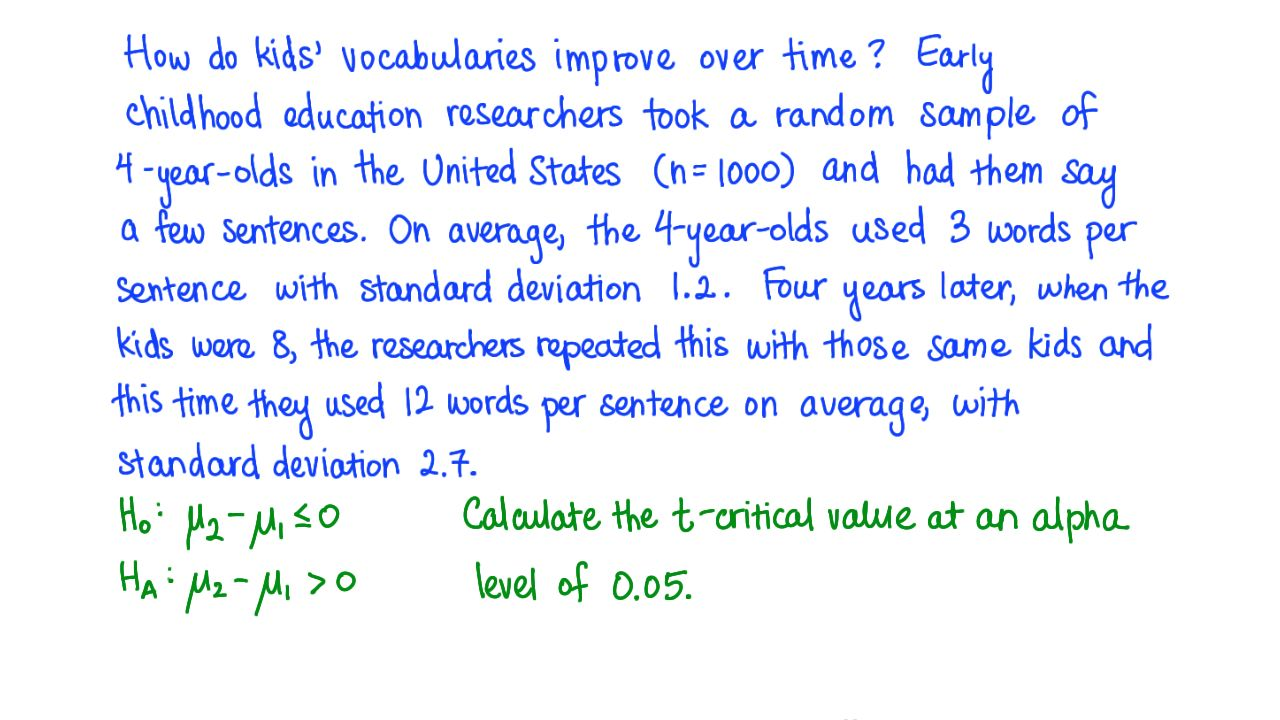 How do kids' vocabularies improve over time? Early
childhood education researchers took a random sample of
4-year-olds in the United States (n=1000) and had them say
a few sentences. On average, the 4-year-olds used 3 words per
sentence with standard deviation 1.2. Four years later, when the
kids were 8, the researchers repeated this with those same kids and
this time they used 12 words per sentence on average, with
standard deviation 2.7.
H₀: μ₂-μ₁≤0 Calculate the t-critical value at an alpha
H_A: μ₂-μ₁ >0 level of 0.05.